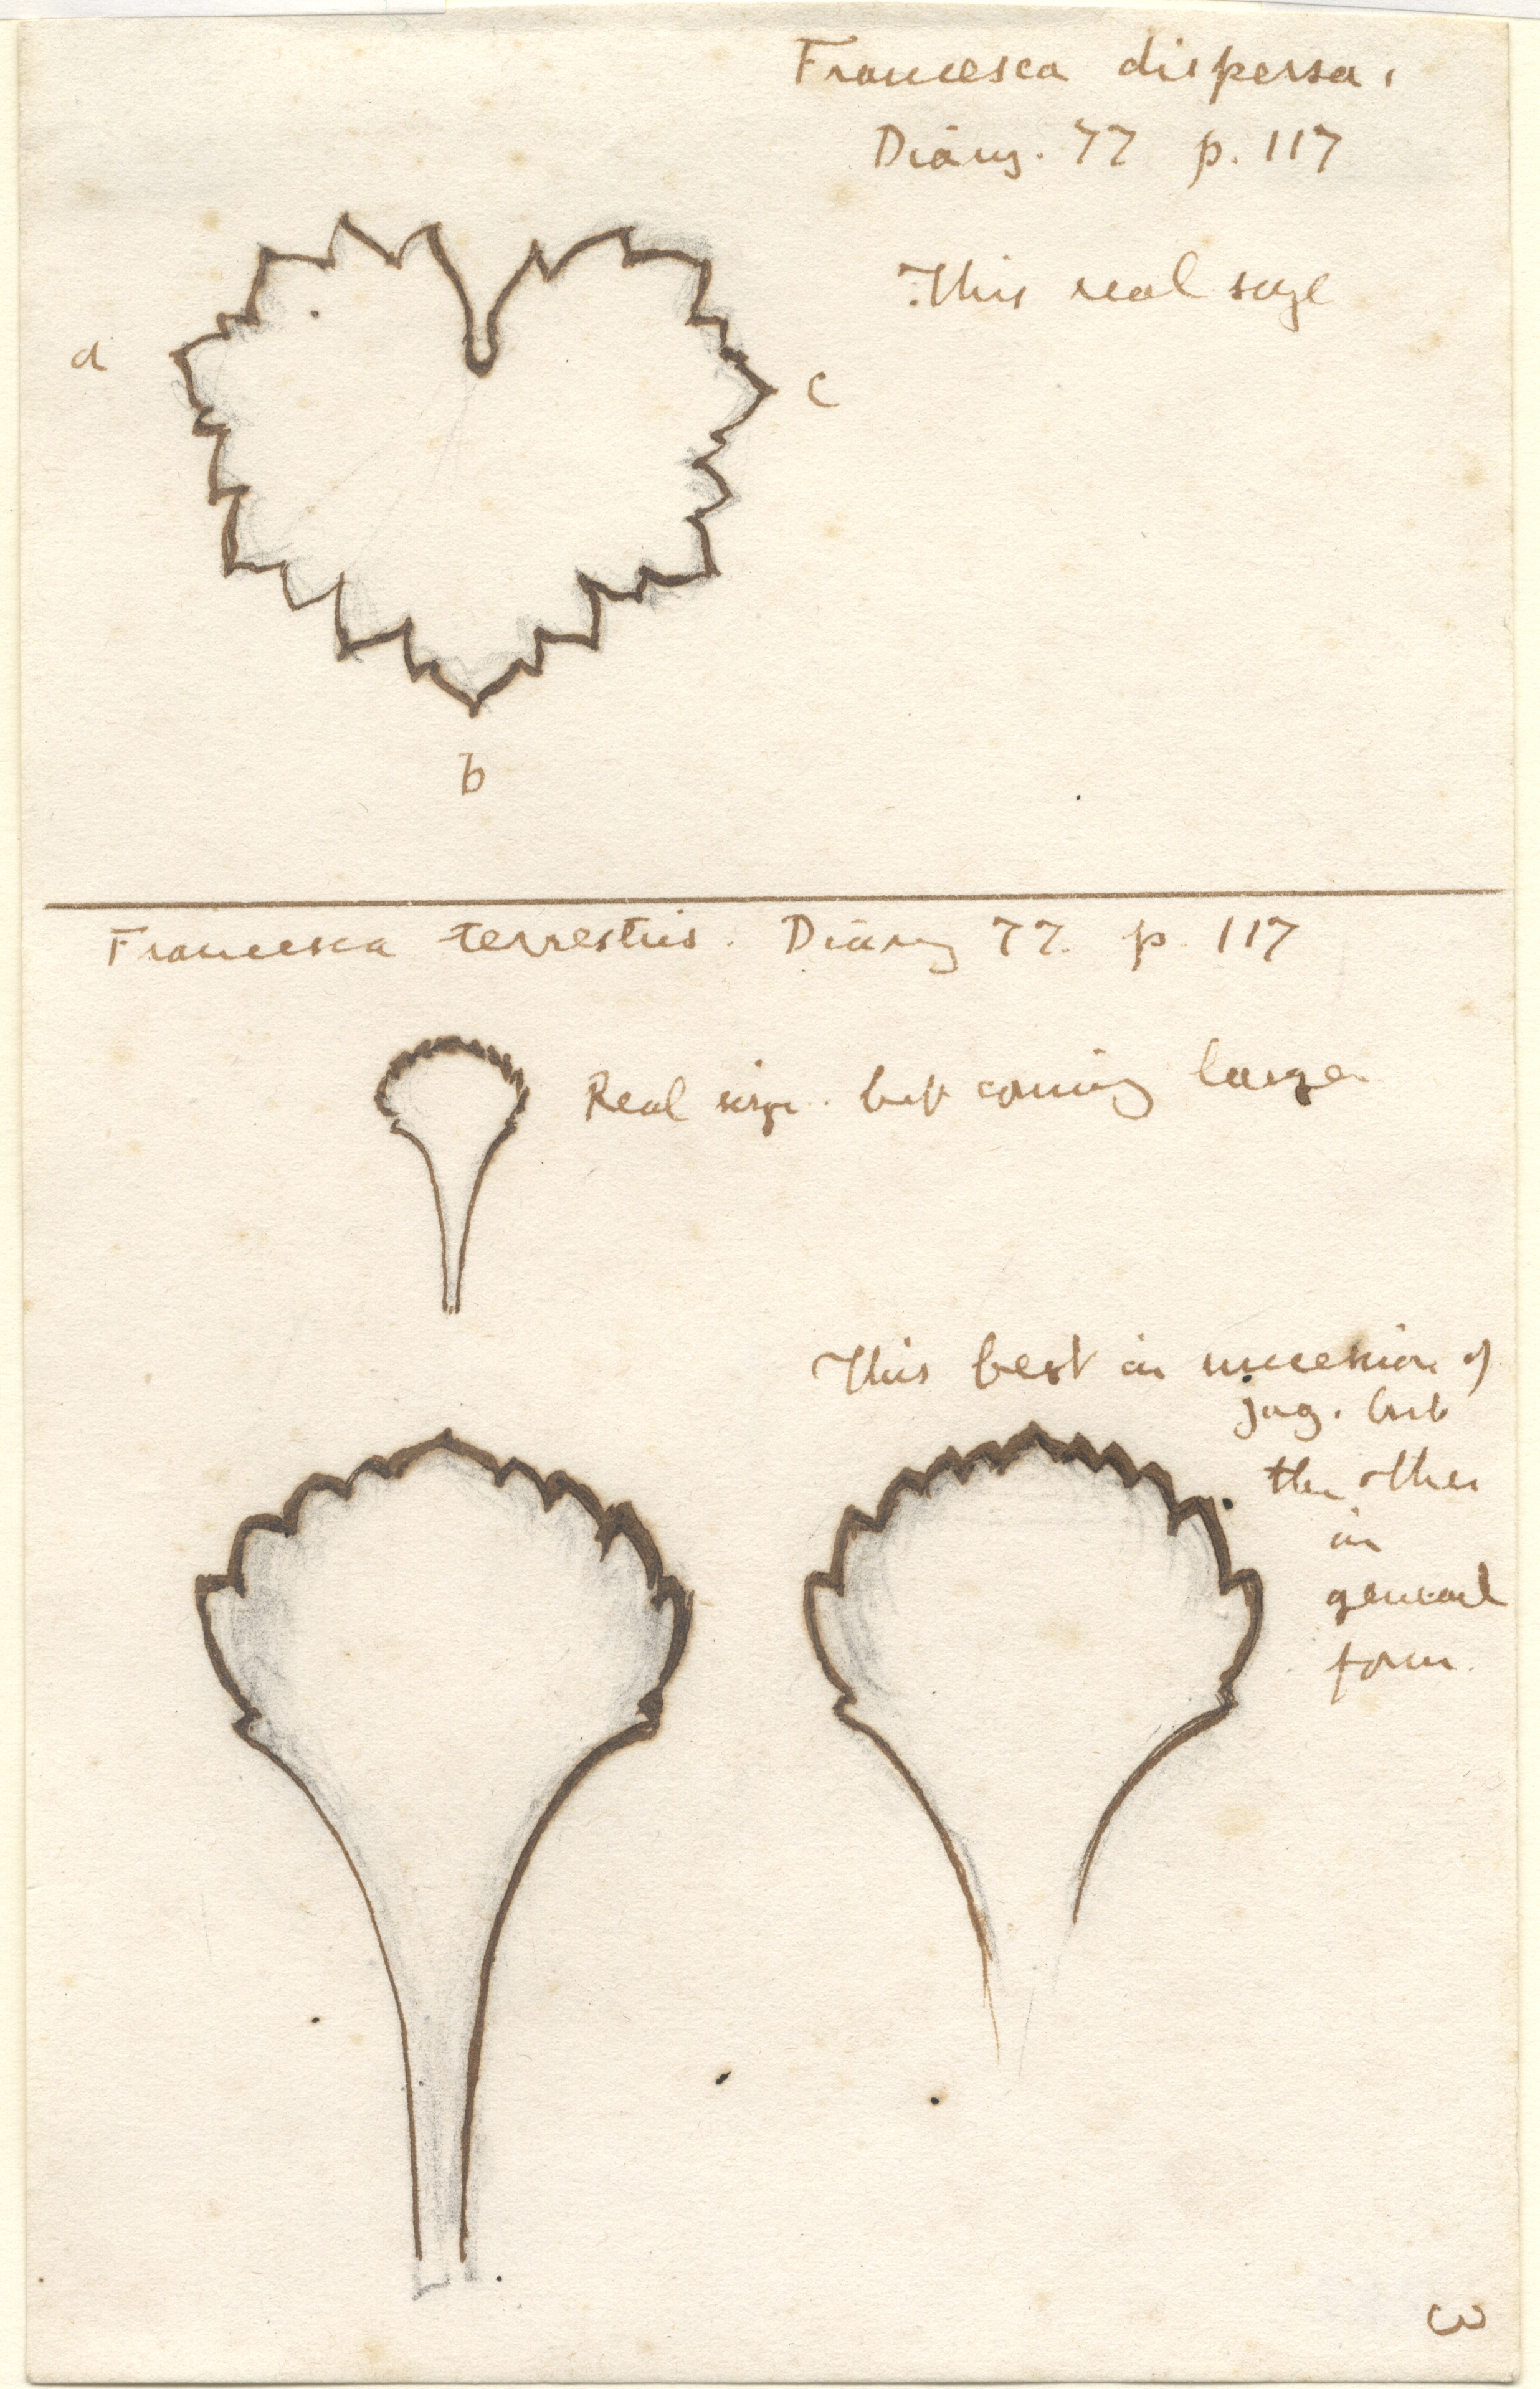 Francesca dispersa.
Diary. 77 p. 117
This real size
a
c
b
Francesca terrestris. Diary 77. p. 117
Real size. but coming larger
This best in succession of
jag. but
the other
in
general
form.
3